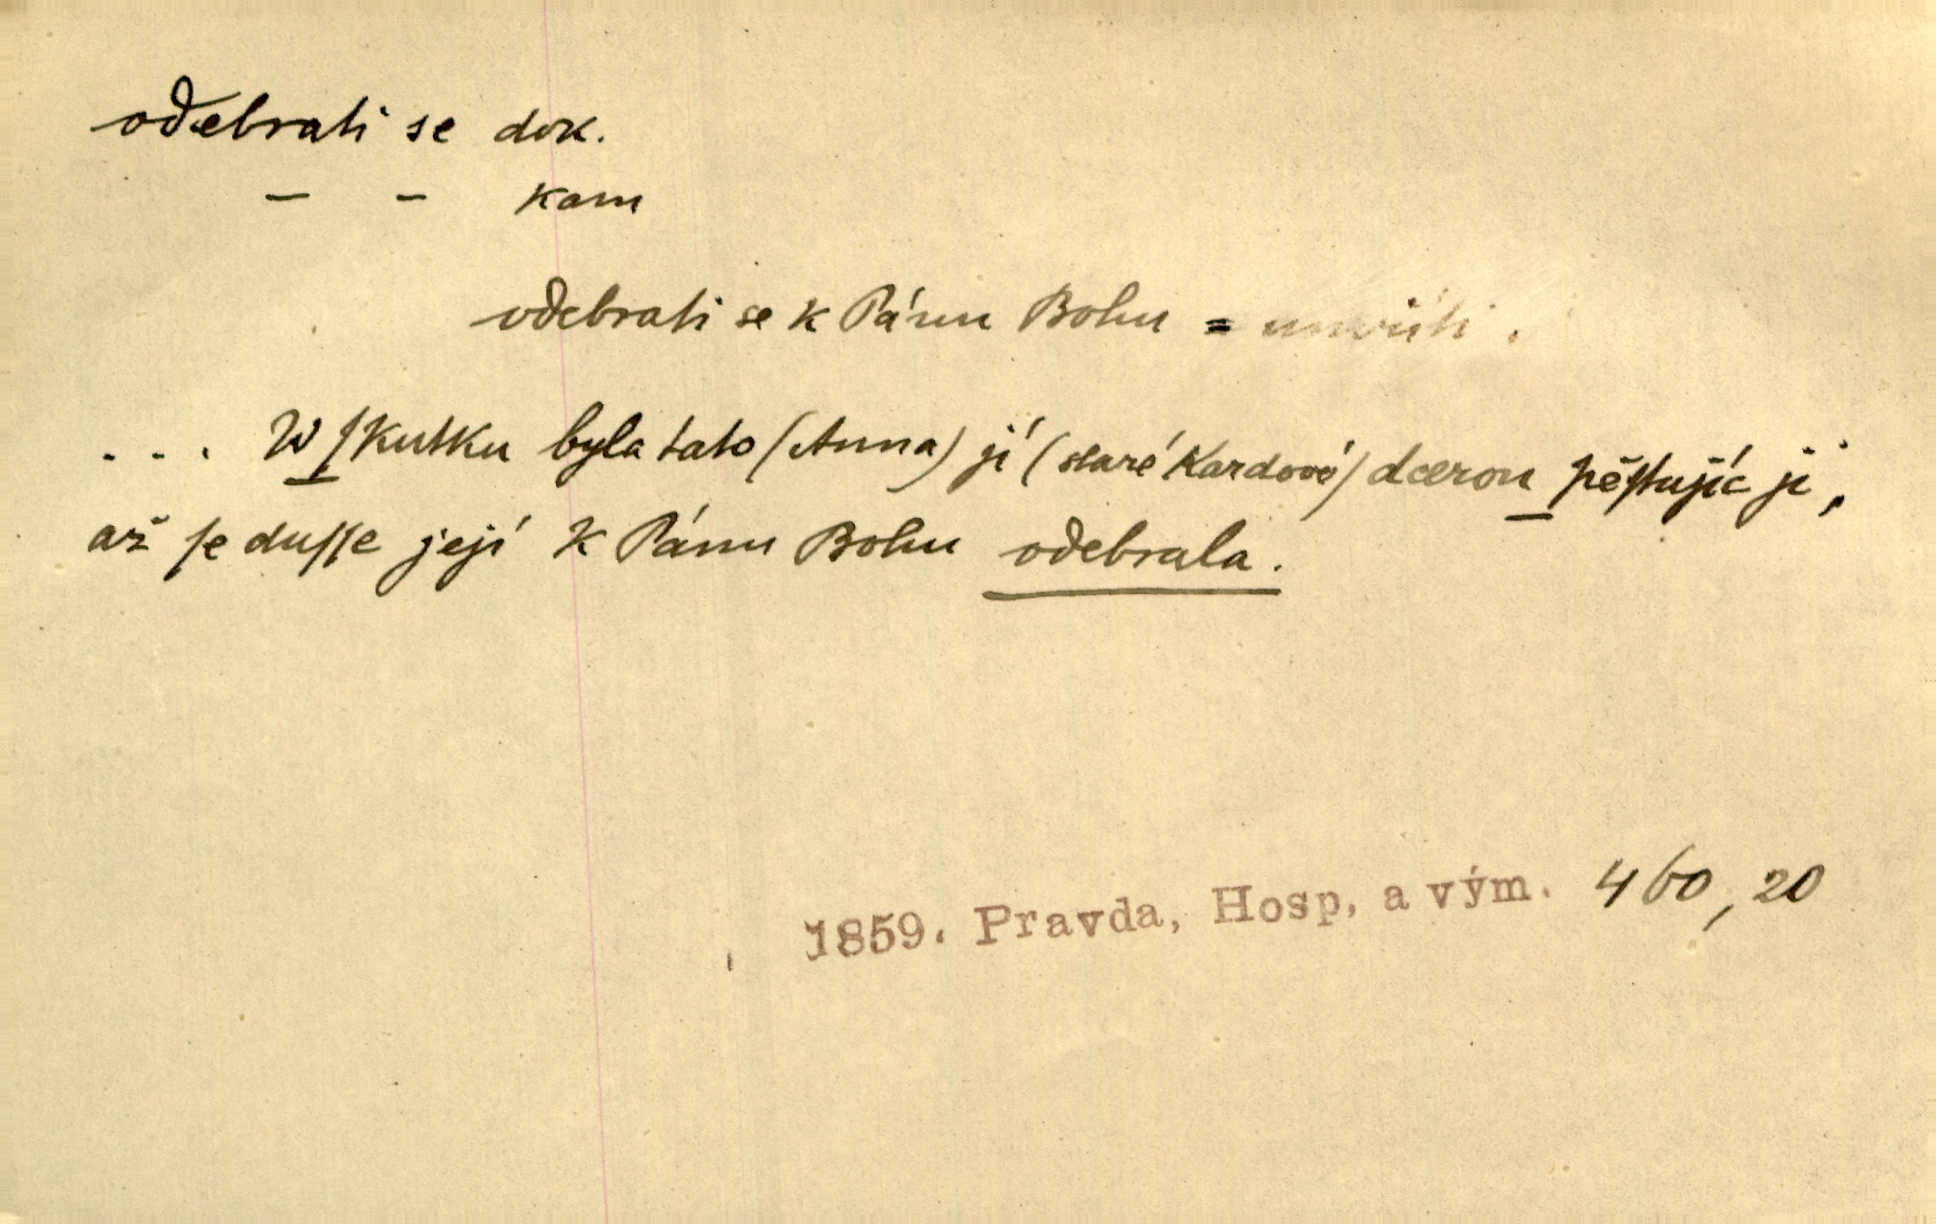 odebrati se dok.
– – kam
odebrati se k Pánu Bohu = umříti.
... W ſkutku byla tato (Anna) jí (staré Kardové) dcerou pěſtujíc ji,
až ſe duſſe její k Pánu Bohu odebrala.
1859. Pravda, Hosp, a vým. 460, 20